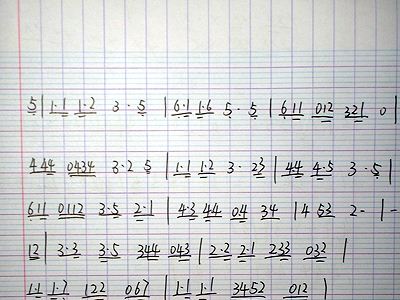 5 | 1·1 1·2 3·5 | 6·1 1·6 5·5 | 611 012 321 0 |
444 0434 3·2 5 | 1·1 1·2 3·23 | 44 4·5 3·5 |
611 0112 3·5 2·1 | 4·3 44 04 34 | 4 53 2- | -
12 | 3·3 3·5 344 043 | 2·2 2·1 233 032 |
1·1 1·7 122 067 | 1·1 1·1 3452 012 |